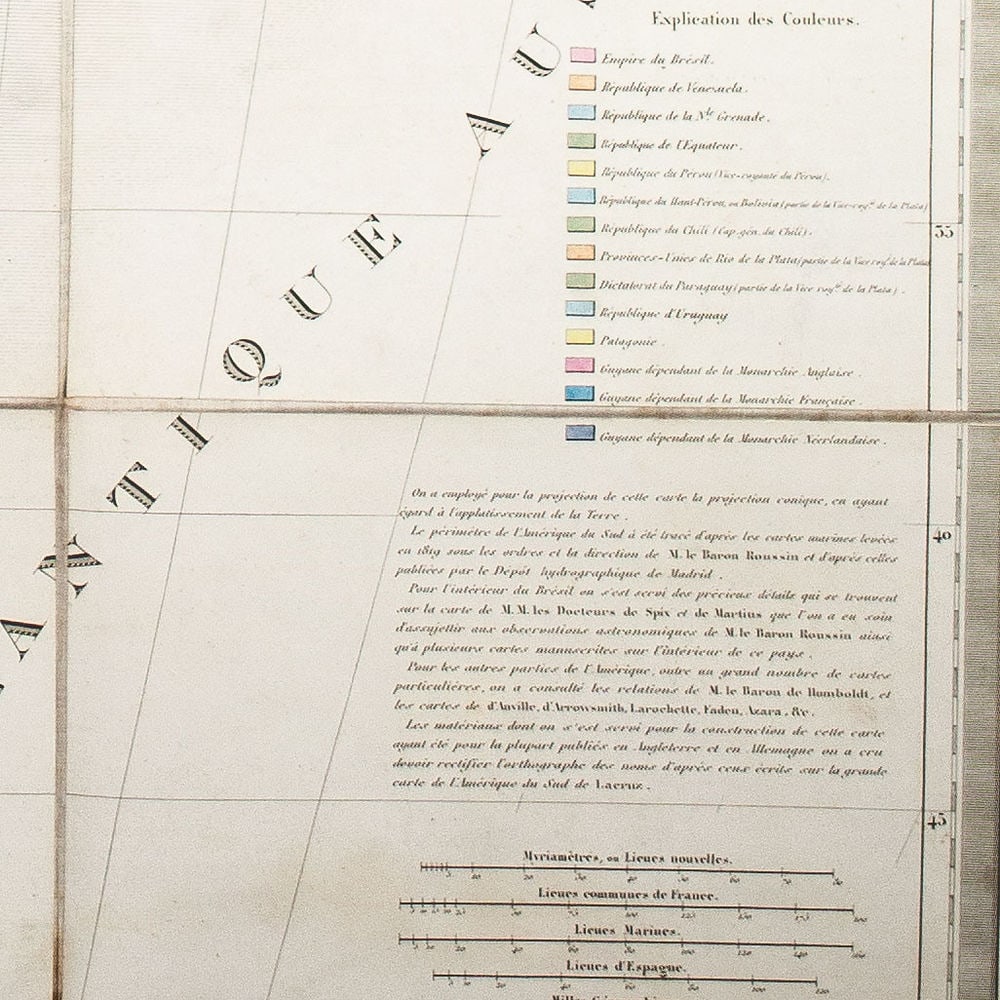 Explication des Couleurs.
Empire du Brésil.
République de Vénézuela.
République de la Nle. Grenade.
République de l'Equateur.
République du Pérou (Vice-royauté du Pérou).
République du Haut-Pérou, ou Bolivia (partie de la Vice-roy.té de la Plata)
République du Chili (Cap. gén. du Chili).
Provinces-Unies de Rio de la Plata (partie de la Vice roy.té de la Plata)
Dictatorat du Paraguay (partie de la Vice roy.té de la Plata).
République d'Uruguay
Patagonie.
Guyane dépendant de la Monarchie Anglaise.
Guyane dépendant de la Monarchie Française.
Guyane dépendant de la Monarchie Néerlandaise.
ANTIQUE AU
35
40
45
On a employé pour la projection de cette carte la projection conique, en ayant
égard à l'applatissement de la Terre.
Le périmètre de l'Amérique du Sud à été tracé d'après les cartes marines levées
en 1819 sous les ordres et la direction de M. le Baron Roussin et d'après celles
publiées par le Dépôt hydrographique de Madrid.
Pour l'intérieur du Brésil on s'est servi des précieux détails qui se trouvent
sur la carte de M.M. les Docteurs de Spix et de Martius que l'on a eu soin
d'assujettir aux observations astronomiques de M. le Baron Roussin ainsi
qu'à plusieurs cartes manuscrites sur l'intérieur de ce pays.
Pour les autres parties de l'Amérique, outre un grand nombre de cartes
particulières, on a consulté les relations de M. le Baron de Humboldt, et
les cartes de d'Anville, d'Arrowsmith, Larochette, Faden, Azara, &c.
Les matériaux dont on s'est servi pour la construction de cette carte
ayant été pour la plupart publiés en Angleterre et en Allemagne on a cru
devoir rectifier l'orthographe des noms d'après ceux écrits sur la grande
carte de l'Amérique du Sud de Lacruz.
Myriamètres, ou Lieues nouvelles.
Lieues communes de France.
Lieues Marines.
Lieues d'Espagne.